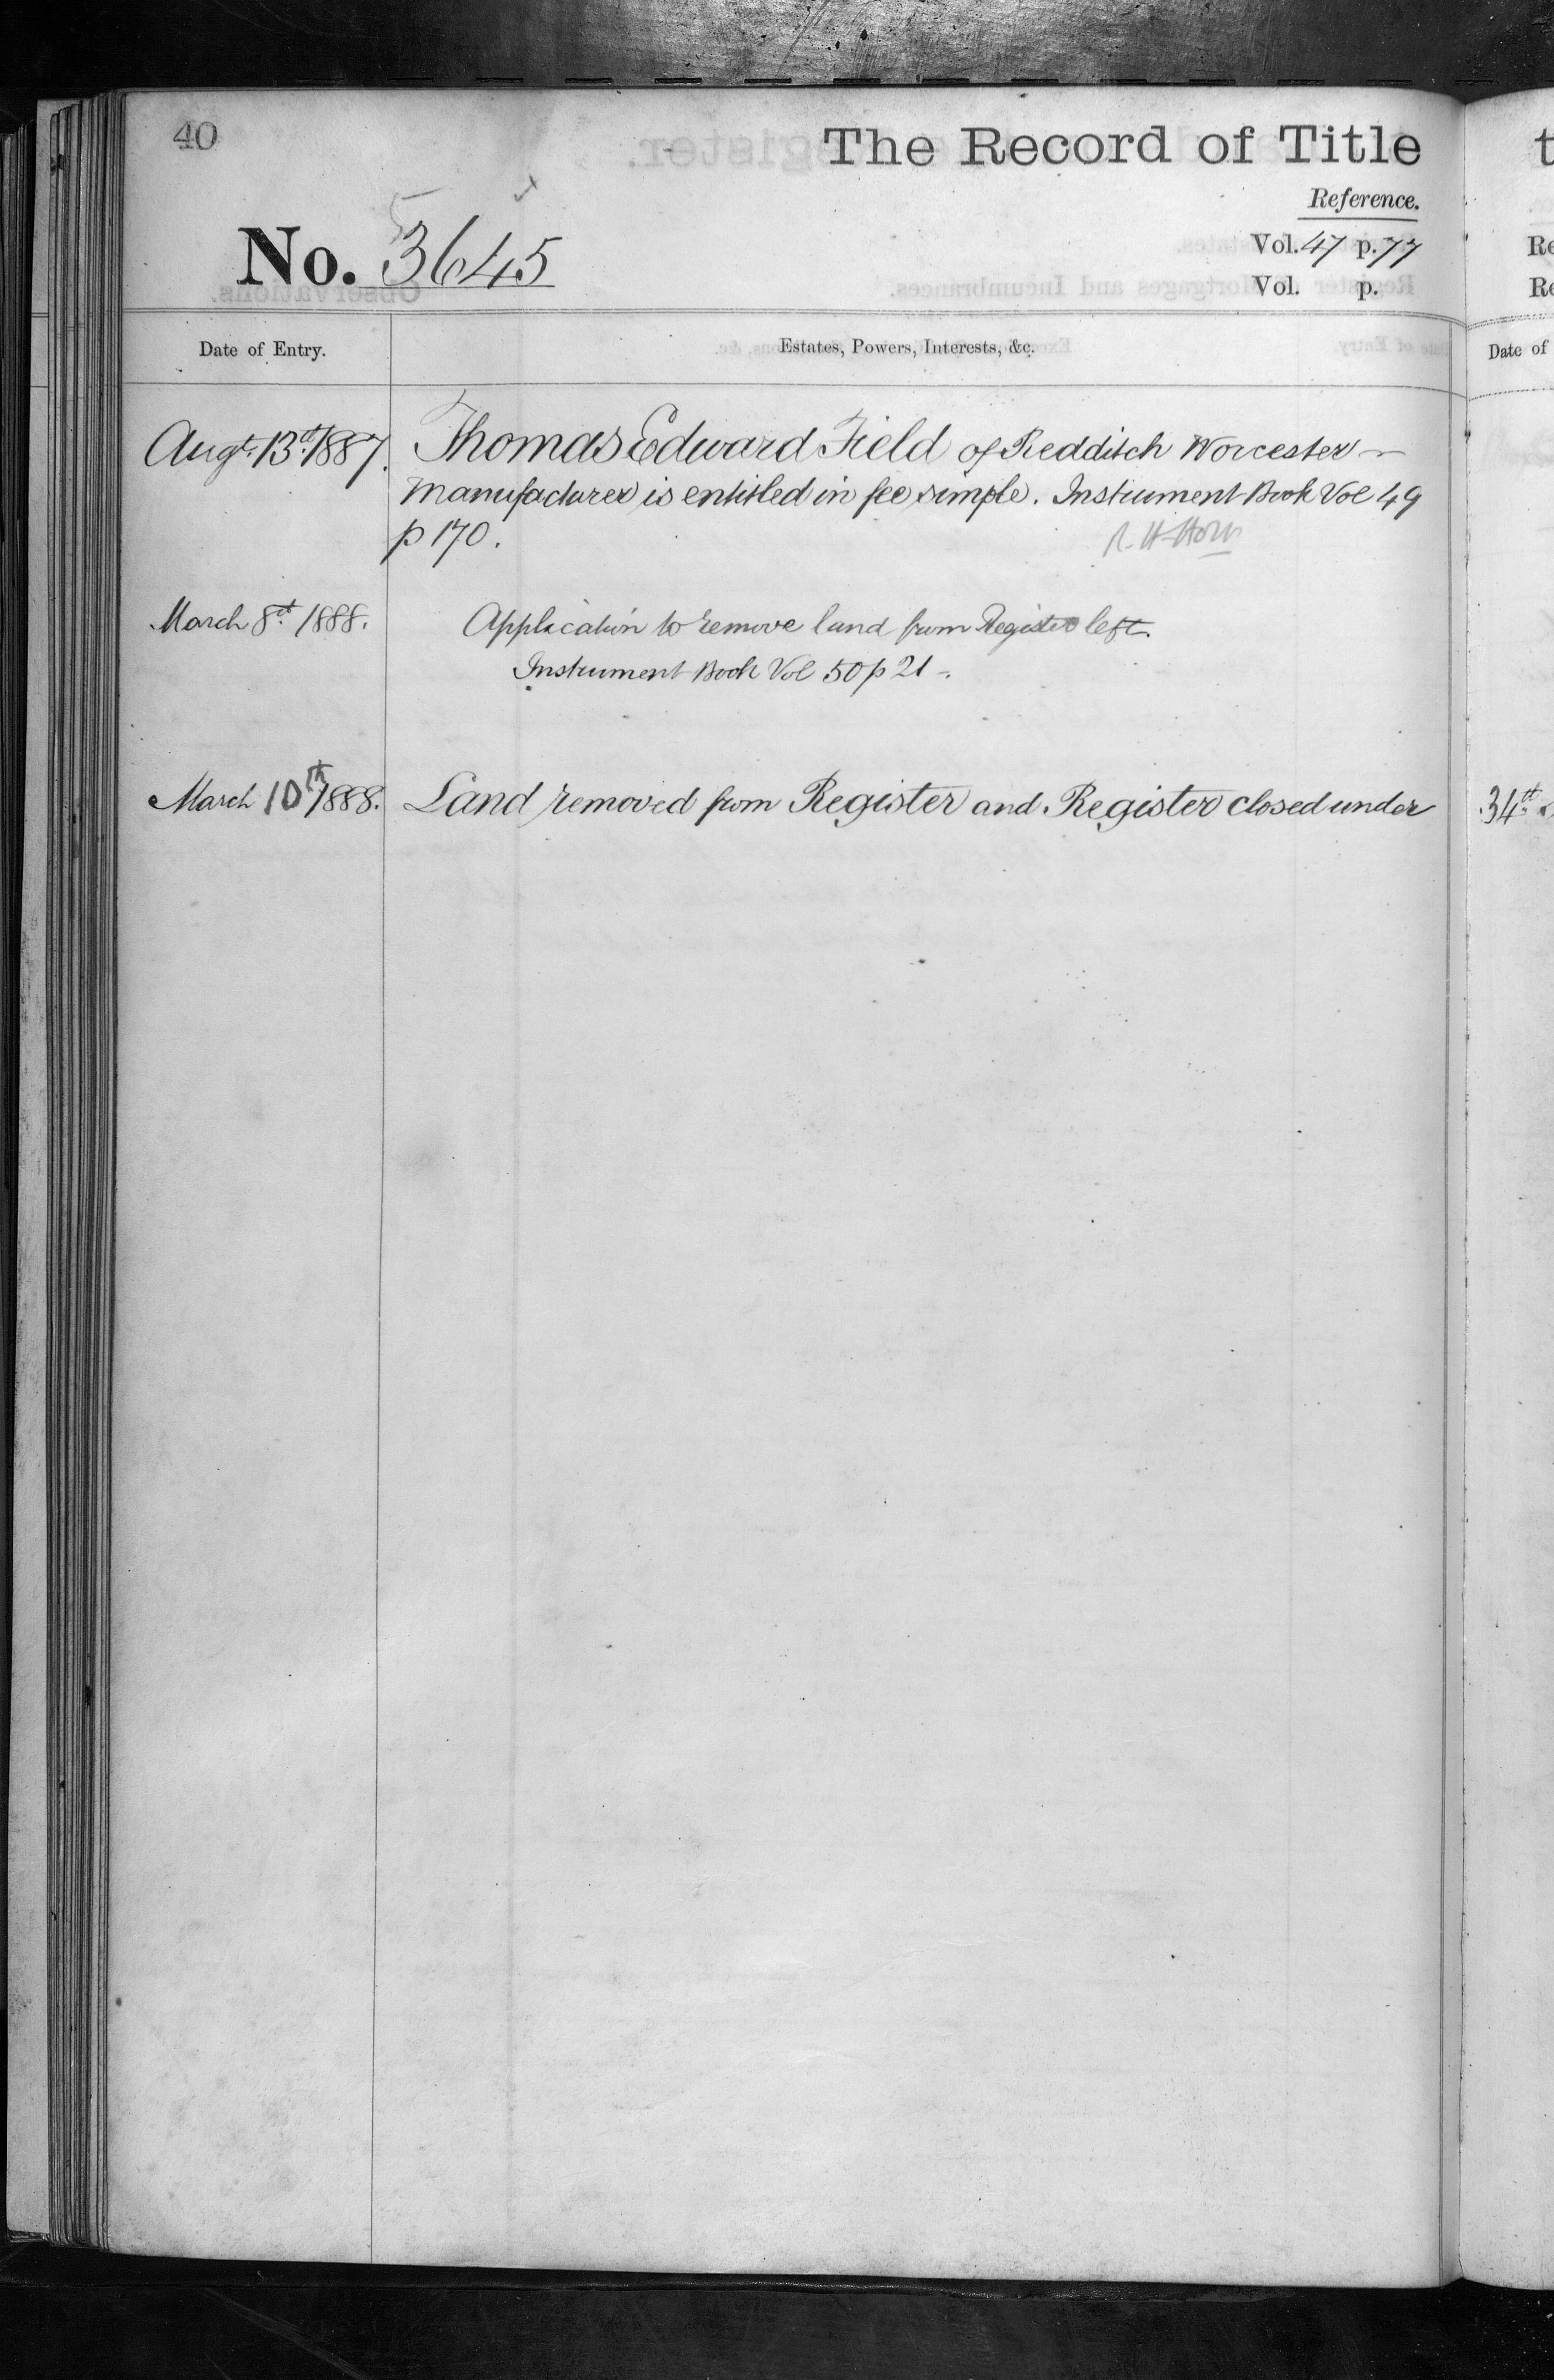 40
The Record of Title
Reference.
No. 3645
Vol. 47 p. 77
Vol. p.
Date of Entry.
Estates, Powers, Interests, &c.
Augt. 13th 1887. Thomas Edward Field of Redditch Worcester
Manufacturer is entitled in fee simple. Instrument Book Vol 49
p 170.
March 8th 1888. Application to remove land from Register left.
Instrument Book Vol 50 p 21 -.
March 10th 1888. Land removed from Register and Register closed under
Date of
34th